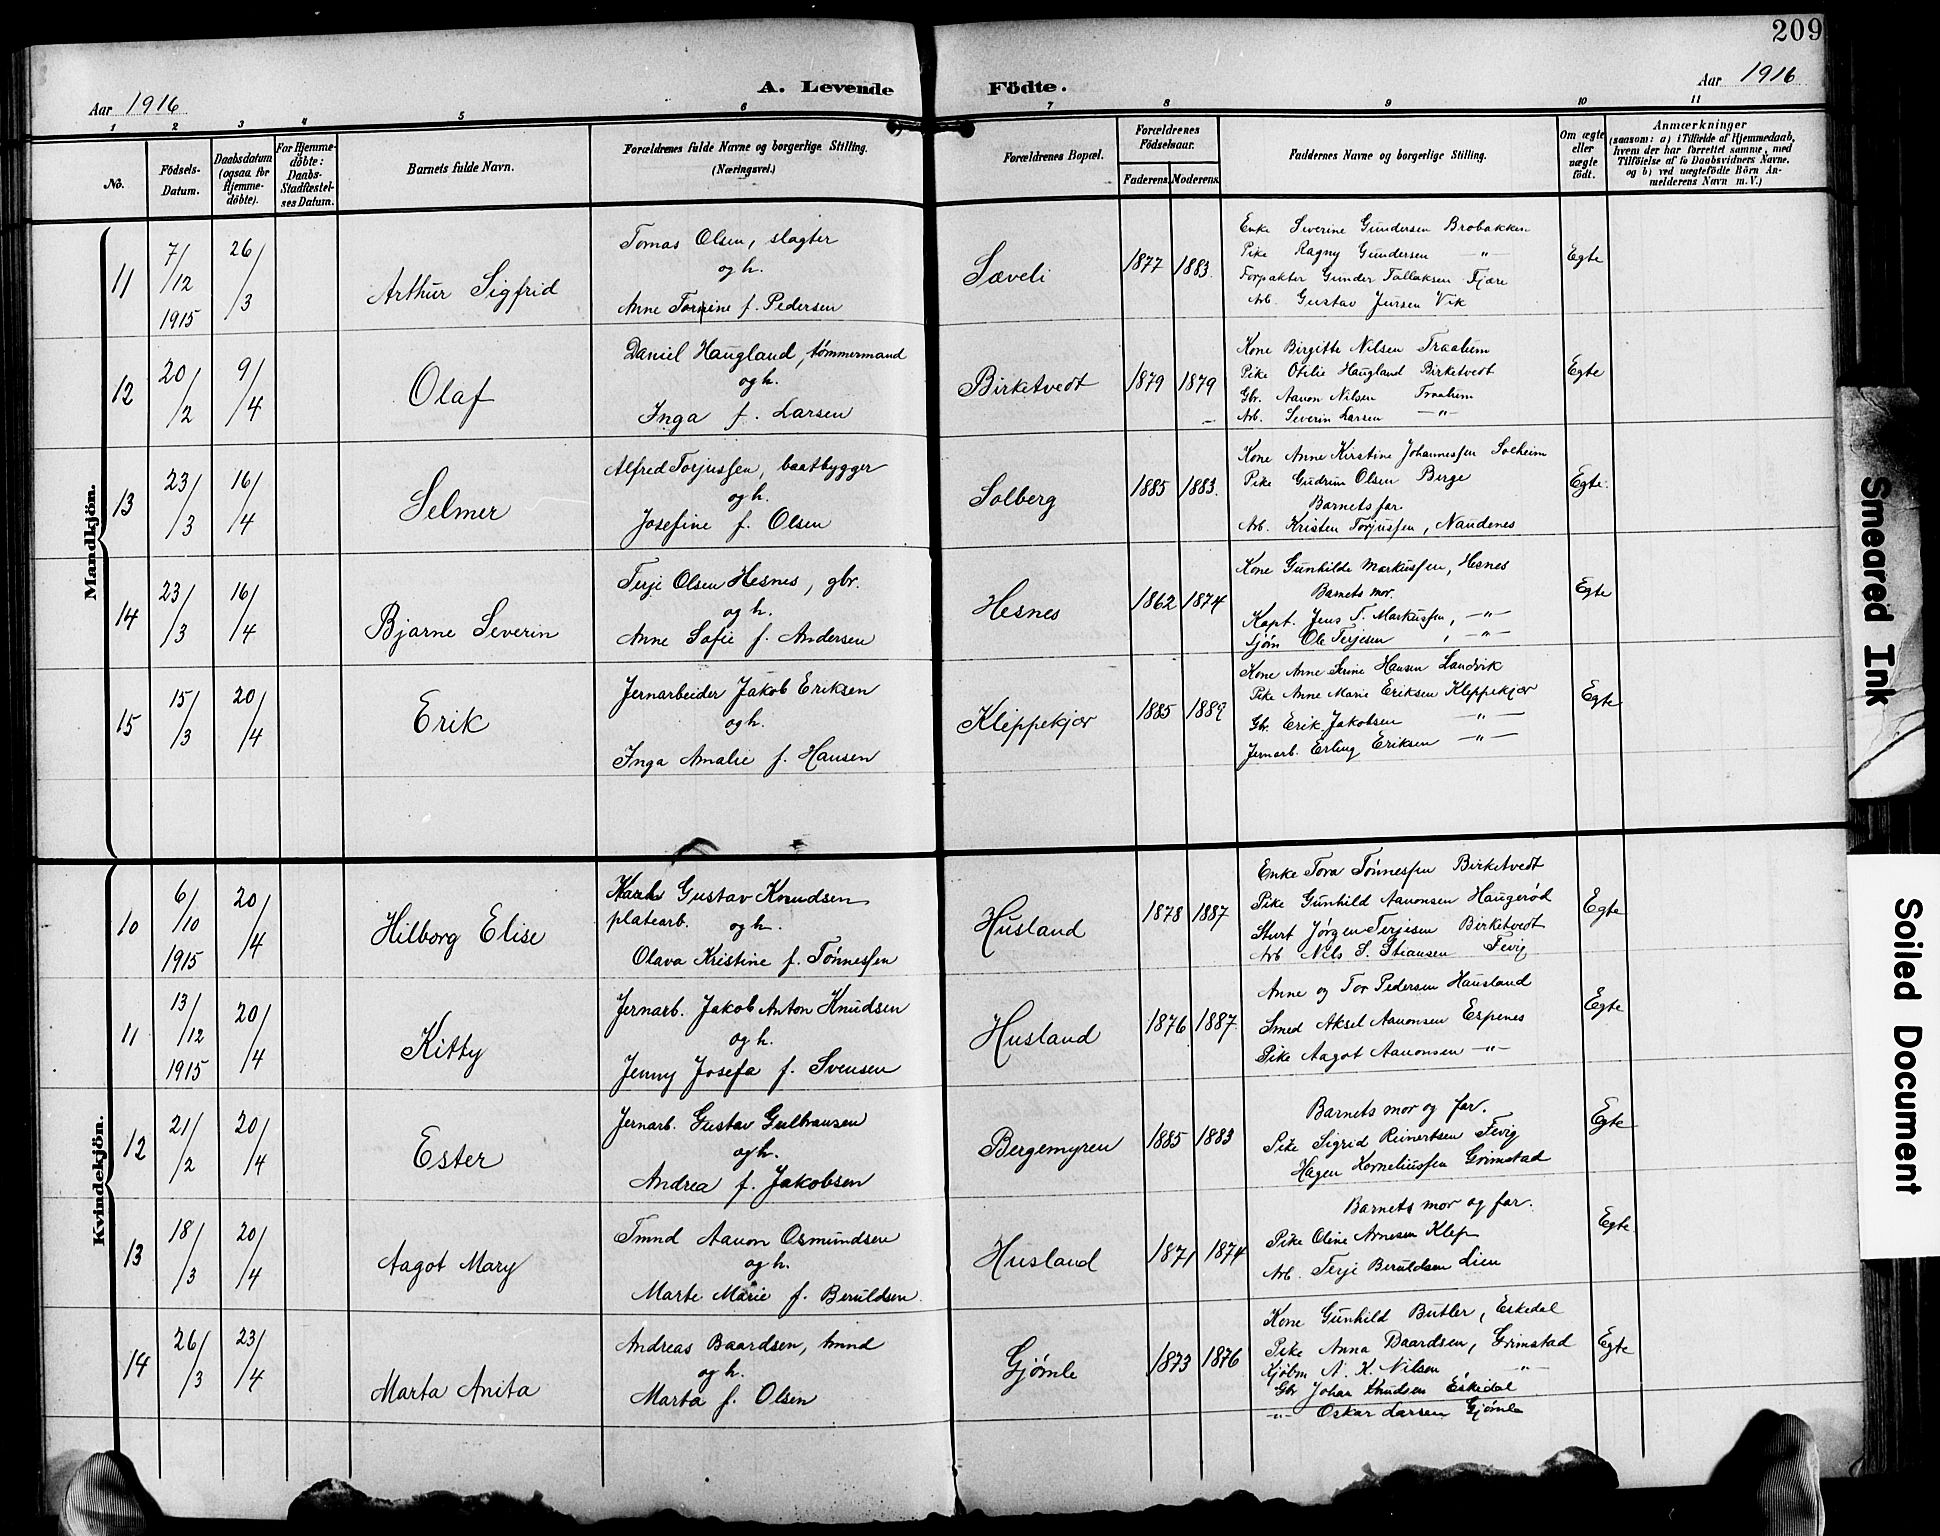 209
Aar 1916
A. Levende Födte.
Aar 1916
1 2 3 4 5 6 7 8 9 10 11
No.
Födsels-
Datum.
Daabsdatum
(ogsaa for
Hjemme-
döbte).
For Hjemme-
döbte:
Daabs-
Stadfæstel-
ses Datum.
Barnets fulde Navn.
Forældrenes fulde Navne og borgerlige Stilling.
(Næringsvei.)
Forældrenes Bopæl.
Forældrenes
Födselsaar.
Faderens.
Moderens.
Faddernes Navne og borgerlige Stilling.
Om ægte
eller
uægte
födt.
Anmærkninger
(saasom: a) i Tilfælde af Hjemmedaab,
hvem der har forrettet samme, med
Tilföielse af to Daabsvidners Navne,
og b) ved uægtefödte Börn An-
melderens Navn m. V.)
Mandkjön.
11
7/12
1915
26/3
Arthur Sigfrid
Tomas Olsen, slagter
og h.
Anne Tomine f. Pedersen
Sæveli
1877
1883.
Enke Severine Gundersen Brobakken
Pike Ragny Gundersen —"—
Forpakter Gunder Tallaksen Fjære
Arb. Gustav Jensen Vik
Egte
12
20/2
9/4
Olaf
Daniel Haugland, tømmermand
og h.
Inga f. Larsen
Birketvedt
1879
1879
Kone Birgitte Nilsen Traalum
Pike Otilie Haugland Birketvedt
Gbr. Aanon Nilsen Traalum
Arb. Severin Larsen —"—
Egte
13
23/3
16/4
Selmer
Alfred Torjussen, baatbygger
og h.
Josefine f. Olsen
Solberg
1885
1883.
Kone Anne Kirstine Johannessen Solheim
Pike Gudrun Olsen Berge
Barnets far
Arb. Kristen Torjussen, Naudenes
Egte.
14
23/3
16/4
Bjarne Severin
Terje Olsen Hesnes, gbr.
og h.
Anne Sofie f. Andersen
Hesnes
1862
1874
Kone Gunhilde Markussen, Hesnes
Barnets mor.
Kapt. Jens T. Markussen, —"—
Sjøm Ole Terjesen, —"—
Egte
15
15/3
20/4
Erik
Jernarbeider Jakob Eriksen
og h.
Inga Amalie f. Hansen
Kleppekjær
1885
1889
Kone Anne Serine Hansen Landvik
Pike Anne Marie Eriksen Kleppekjær
Gbr. Erik Jakobsen —"—
Jernarb. Erling Eriksen —"—
Egte
Kvindekjön.
10
6/10
1915
20/4
Hilborg Elise
Karl Gustav Knudsen
platearb. og h.
Olava Kristine f. Tønnessen
Husland
1878
1887
Enke Tora Tønnessen Birketvedt
Pike Gunhild Aanonsen Haugerød
Sturt Jørgen Terjesen Birketvedt
Arb Nils S. Stiansen Fevig
Egte
11
13/12
1915
20/4
Kitty
Jernarb. Jakob Anton Knudsen
og h.
Jenny Josefa f. Svensen
Husland
1876
1887.
Anne og Tor Pedersen Hausland
Smed Aksel Aanonsen Espenes
Pike Aagot Aanonsen —"—
Egte
12
21/2
20/4
Ester
Jernarb. Gustav Gulhausen
og h.
Andrea f. Jakobsen
Bergemyren
1885
1883
Barnets mor og far.
Pike Sigrid Reinertsen Fevig
Hagen Korneliussen Grimstad
Egte
13
18/3
20/4
Aagot Mary
Tmnd Aanon Osmundsen
og h.
Marte Marie f. Beruldsen.
Husland
1871
1874
Barnets mor og far.
Pike Oline Arnesen Klep
Arb. Terje Beruldsen Lien
Egte
14
26/3
23/4
Marta Anita
Andreas Baardsen, tmnd
og h.
Marta f. Olsen
Gjømle
1873
1876
Kone Gunhild Butler, Eskedal
Pike Anna Baardsen, Grimstad
Kjøbm A. K. Nilsen —"—
Gbr Johan Knudsen Eskedal
—"— Oskar Larsen Gjømle
Egte
Smeared Ink
Soiled Document